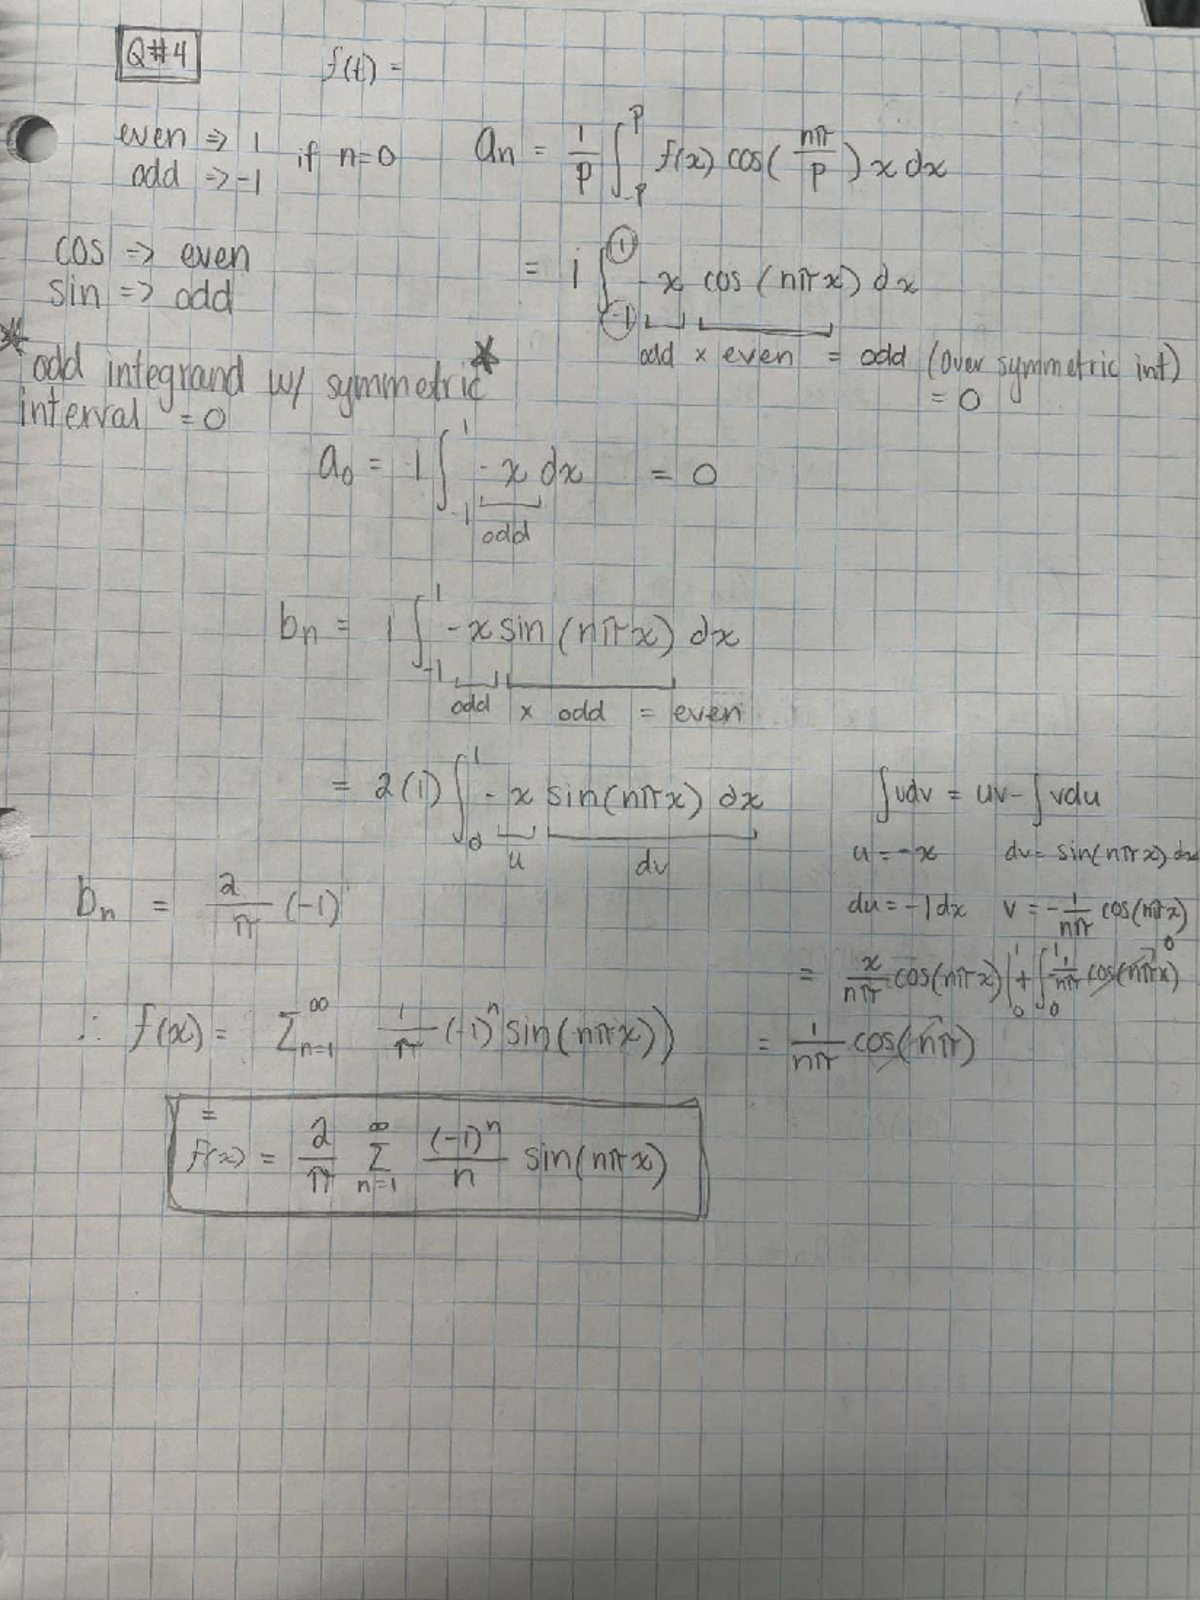 Q#4
f(t) =
even => 1
odd => -1
if n=0
an = 1/p ∫_{-p}^{p} f(x) cos(nπ/p) x dx
cos => even
sin => odd
= 1 ∫_{-1}^{1} -x cos(nπx) dx
odd x even = odd (over symmetric int)
= 0
* odd integrand w/ symmetric *
interval = 0
a0 = 1 ∫_{-1}^{1} -x dx = 0
odd
bn = 1 ∫_{-1}^{1} -x sin(nπx) dx
odd x odd = even
= 2(1) ∫_0^1 -x sin(nπx) dx
u dv
∫udv = uv - ∫vdu
u = -x dv = sin(nπx) dx
du = -1dx v = -1/nπ cos(nπx)
bn = 2/π (-1)
= x/nπ cos(nπx)|_0^1 + ∫_0^1 1/nπ cos(nπx) 0
= 1/nπ cos(nπ)
∴ f(x) = Σ_{n=1}^∞ 1/π (-1)^n sin(nπx))
=
f(x) = 2/π Σ_{n=1}^∞ (-1)^n/n sin(nπx)